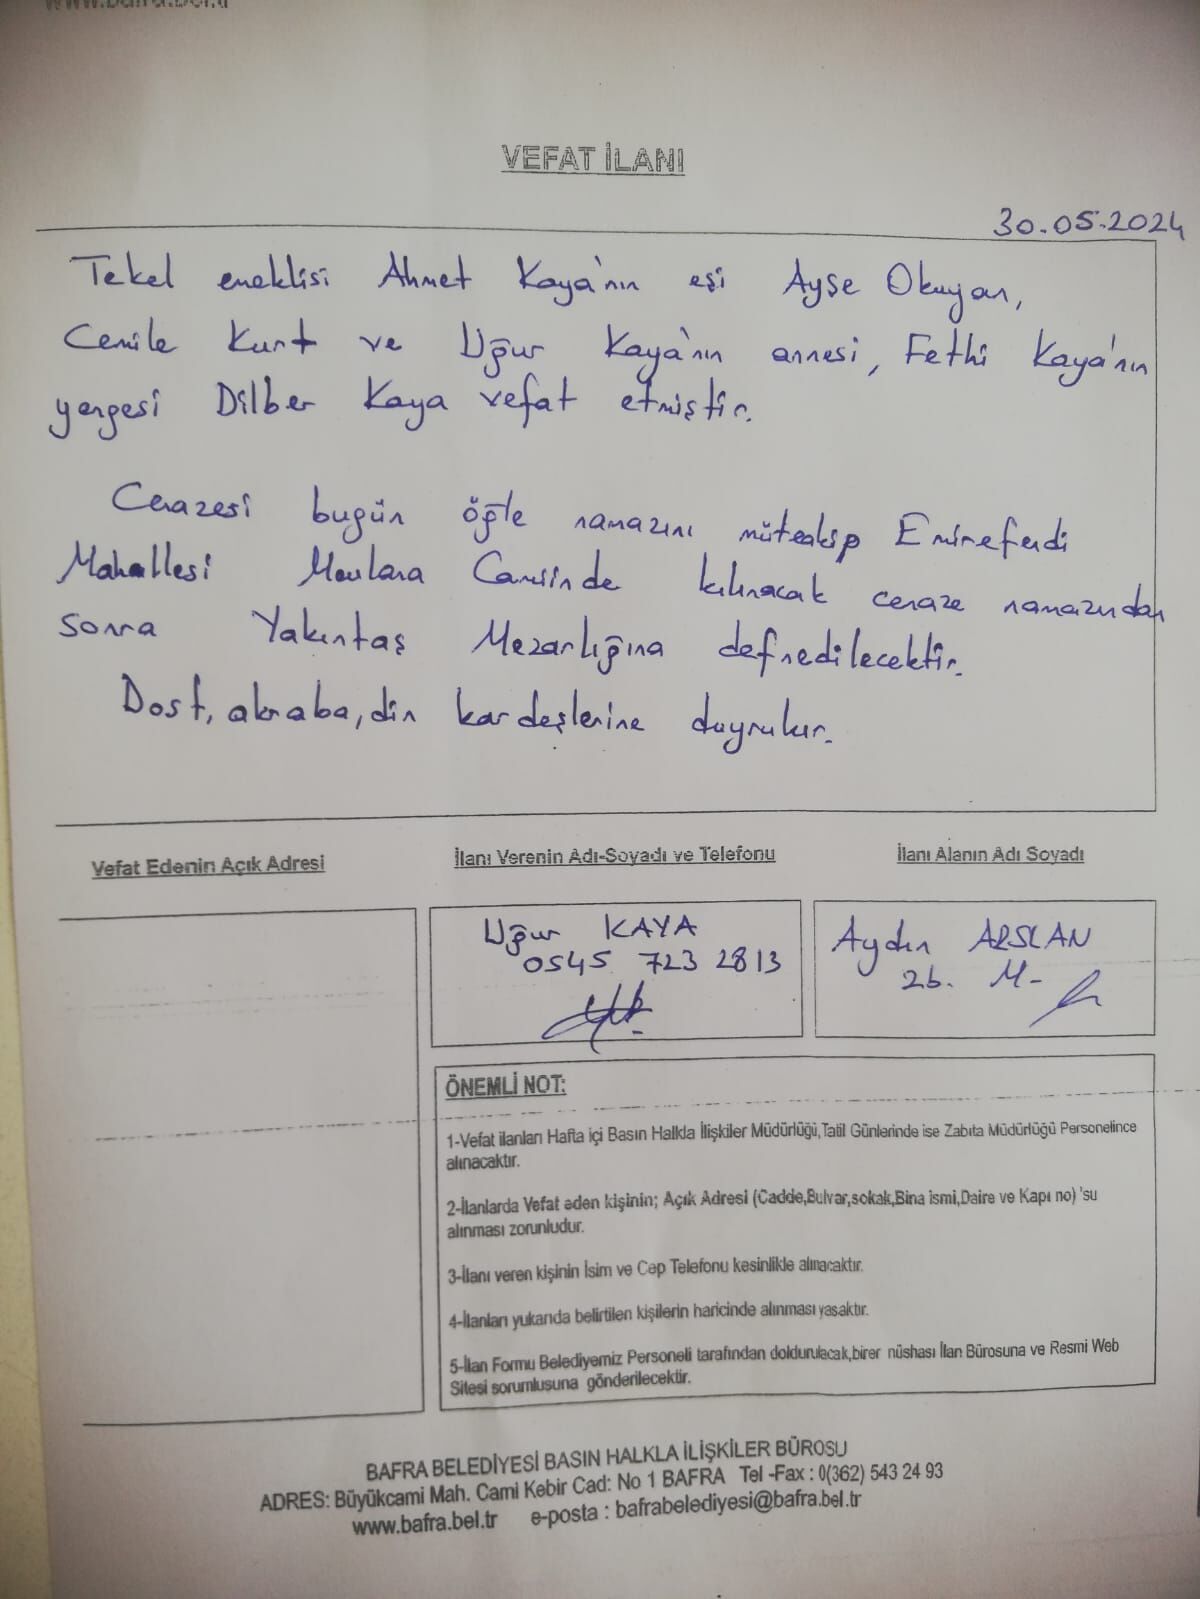 www.bafra.bel.tr
VEFAT İLANI
30.05.2024
Tekel emeklisi Ahmet Kaya'nın eşi Ayşe Okuyan,
Cemile Kurt ve Uğur Kaya'nın annesi, Fethi Kaya'nın
yengesi Dilber Kaya vefat etmiştir.
Cenazesi bugün öğle namazını müteakip Emirefendi
Mahallesi Mevlana Camiinde kılınacak cenaze namazından
sonra Yakıntaş Mezarlığına defnedilecektir.
Dost, akraba, din kardeşlerine duyrulur.
Vefat Edenin Açık Adresi
İlanı Verenin Adı-Soyadı ve Telefonu
İlanı Alanın Adı Soyadı
Uğur KAYA
0545 723 2813
Aydın ARSLAN
Zb. M-
ÖNEMLİ NOT:
1-Vefat ilanları Hafta içi Basın Halkla İlişkiler Müdürlüğü,Tatil Günlerinde ise Zabıta Müdürlüğü Personelince
alınacaktır.
2-İlanlarda Vefat eden kişinin; Açık Adresi (Cadde,Bulvar,sokak,Bina ismi,Daire ve Kapı no) 'su
alınması zorunludur.
3-İlanı veren kişinin İsim ve Cep Telefonu kesinlikle alınacaktır.
4-İlanları yukarıda belirtilen kişilerin haricinde alınması yasaktır.
5-İlan Formu Belediyemiz Personeli tarafından doldurulacak,birer nüshası İlan Bürosuna ve Resmi Web
Sitesi sorumlusuna gönderilecektir.
BAFRA BELEDİYESİ BASIN HALKLA İLİŞKİLER BÜROSU
ADRES: Büyükcami Mah. Cami Kebir Cad: No 1 BAFRA Tel -Fax : 0(362) 543 24 93
www.bafra.bel.tr e-posta : bafrabelediyesi@bafra.bel.tr